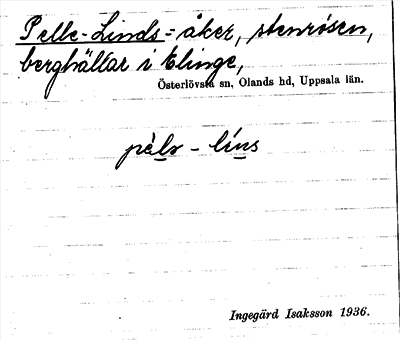 Pelle-Linds-åker, stenrösen,
berghällar i Elinge,
Österlövsta sn, Olands hd, Uppsala län.
pèls - líns
Ingegärd Isaksson 1936.